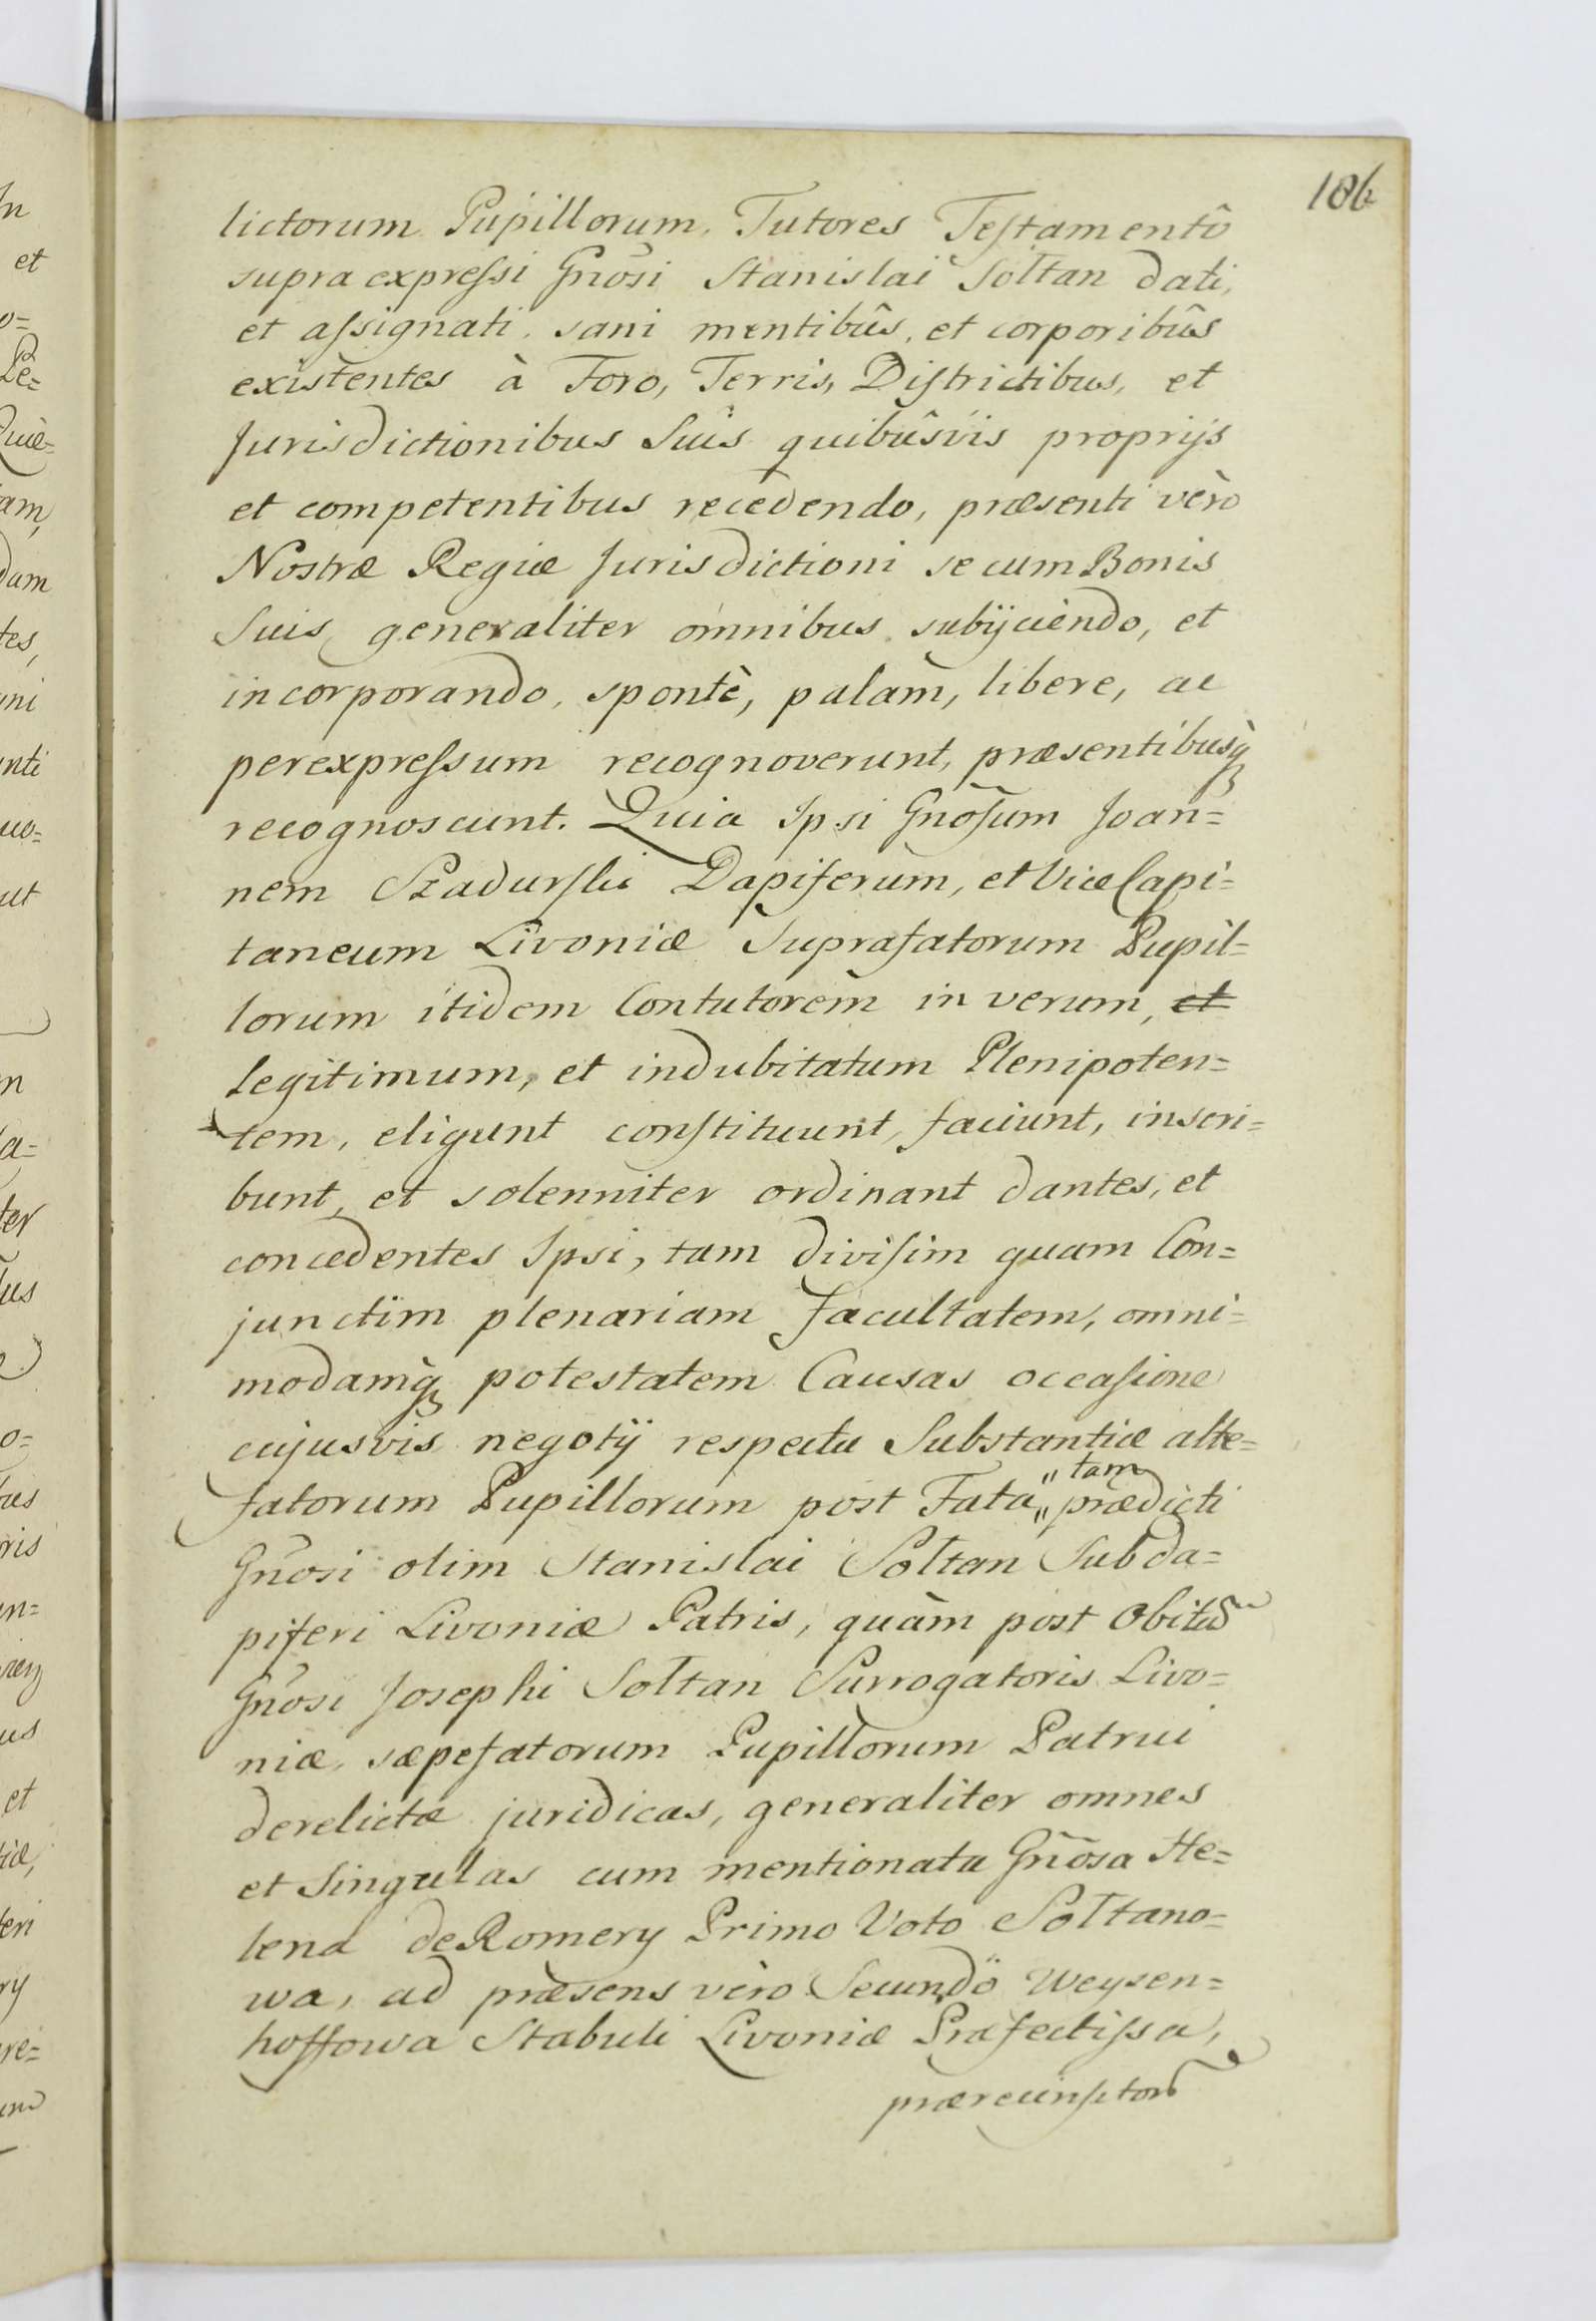 186
lictorum Pupillorum, Tutores Testamentô
supra expressi Gnõsi Stanislai Sołtan dati,
et assignati, sani mentibûs, et corporibûs
existentes à Foro, Terris, Districtibus, et
Jurisdictionibus Suis quibûsvis proprijs
et competentibus recedendo, præsenti verò
Nostræ Regiæ Jurisdictioni se cum Bonis
Suis generaliter omnibus subijciendo, et
incorporando, spontè, palam, libere, ac
perexpressum recognoverunt, præsentibusq̀
recognoscunt. Quia Ipsi Gnõsum Joan=
nem Szadurski Dapiferum, et ViceCapi=
taneum Livoniæ Suprafatorum Pupil=
lorum itidem Contutorem in verum, et
legitimum, et indubitatum Plenipoten=
tem, eligunt constituunt, faciunt, inscri=
bunt, et solenniter ordinant dantes, et
concedentes Ipsi, tam divisim quam Con=
junctim plenariam facultatem, omni=
modamq̀ potestatem Causas occasione
cujusvis negotij respectu Substantiæ alte=
fatorum Pupillorum post Fata " tam " prædicti
Gnõsi olim Stanislai Sołtan Subda=
piferi Livoniæ Patris, quàm post Obitũ
Gnõsi Josephi Sołtan Surrogatoris Livo=
niæ, sæpefatorum Pupillorum Patrui
derelictæ juridicas, generaliter omnes
et Singulas cum mentionata Gnõsa He=
lena de Romery Primo Voto Sołtano=
wa, ad præsens vèro Secundö Weysen=
hoffowa Stabuli Livoniæ Præfectissa,